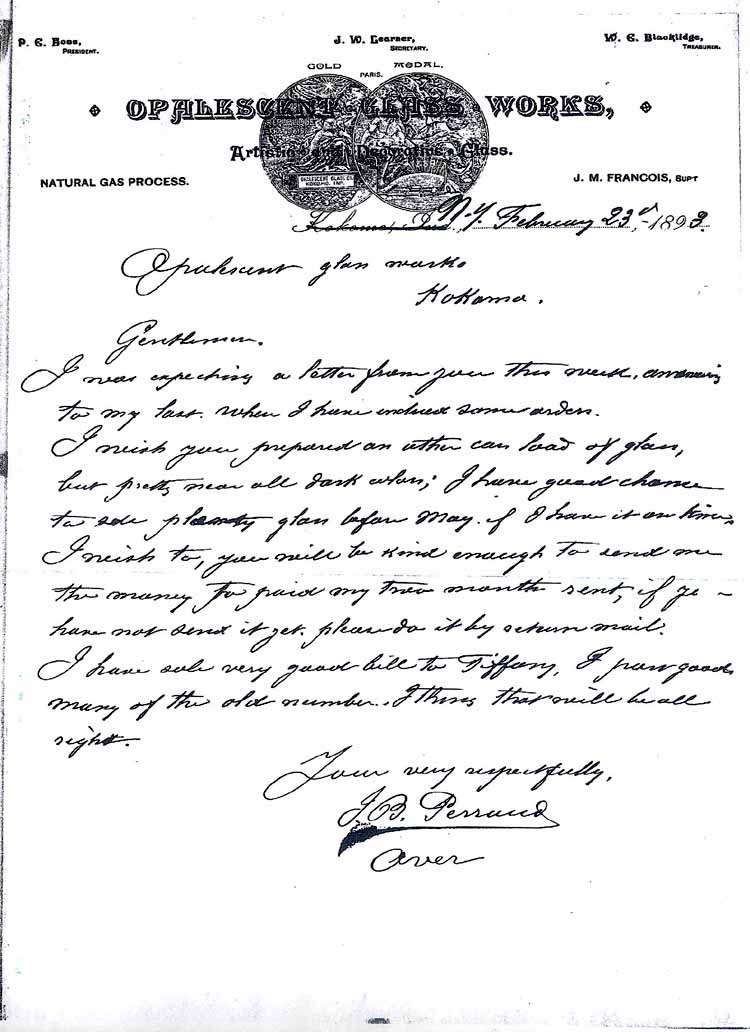 P. E. Hoss,
PRESIDENT.
J. W. Learner,
SECRETARY.
W. E. Blacklidge,
TREASURER.
GOLD MEDAL,
PARIS.
OPALESCENT GLASS WORKS,
Artistic and Decorative Glass.
OPALESCENT GLASS CO.
KOKOMO, IND.
NATURAL GAS PROCESS.
J. M. FRANCOIS, SUPT
Kokomo, Ind., N.Y. February 23rd, 1893.
Opalescent glass works
Kokomo.
Gentlemen.
I was expecting a letter from you this week, answering
to my last. when I have inclused some orders.
I wish you prepared an other car load of glass,
but pretty near all dark colors; I have good chance
to sole plenty glass before May. if I have it on time.
I wish to, you will be kind enough to send me
the money to paid my two months rent, if ye
have not send it yet. please do it by return mail.
I have sole very good bill to Tiffany, I pass good
many of the old number. I think that will be all
right.
Your very respectfully,
J. B. Perraud
Over